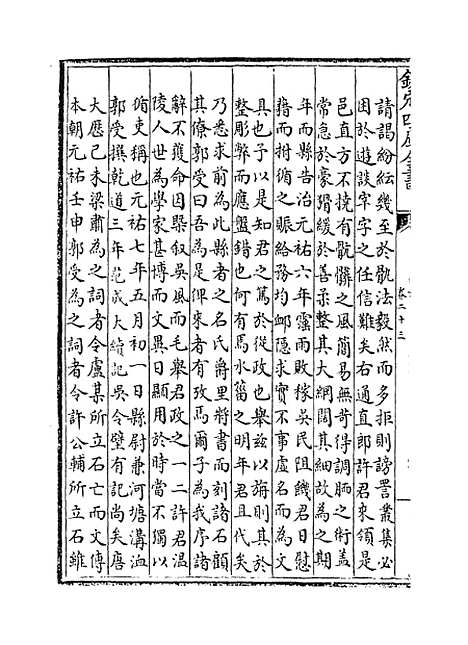 欽定四庫全書
卷二十三
請謁紛紜幾至於骫法毅然而多拒則謗詈叢集必
困於遊談宰字之任信難矣右通直郎許君來領是
邑直方不撓有骯髒之風簡易無苛得調肺之術蓋
常急於豪猾緩於善柔整其大綱闊其細故為之期
年而縣告治元祐六年霪雨敗稼吳民阻饑君日慰
藉而拊循之賑給務均卹隱求實不事虛名而為文
具也予以是知君之篤於從政也舉兹以旃則其於
整彫弊而應盤錯也何有焉水菑之明年君且代矣
乃悉求前為此縣者之名氏爵里將書而刻諸石顧
其僚郭受曰吾為是俾來者有攷焉爾子為我序諸
辭不獲命因槩叙吳風而毛舉君政之一二許君温
陵人世為學家甚博而文異日顯用於時當不獨以
循吏稱也元祐七年五月初一日縣尉兼河塘溝洫
郭受撰乾道三年范成大續記吳令壁有記尚矣唐
大歷己未梁肅為之詞者令盧某所立石亡而文傳
本朝元祐壬申郭受為之詞者令許公輔所立石雖